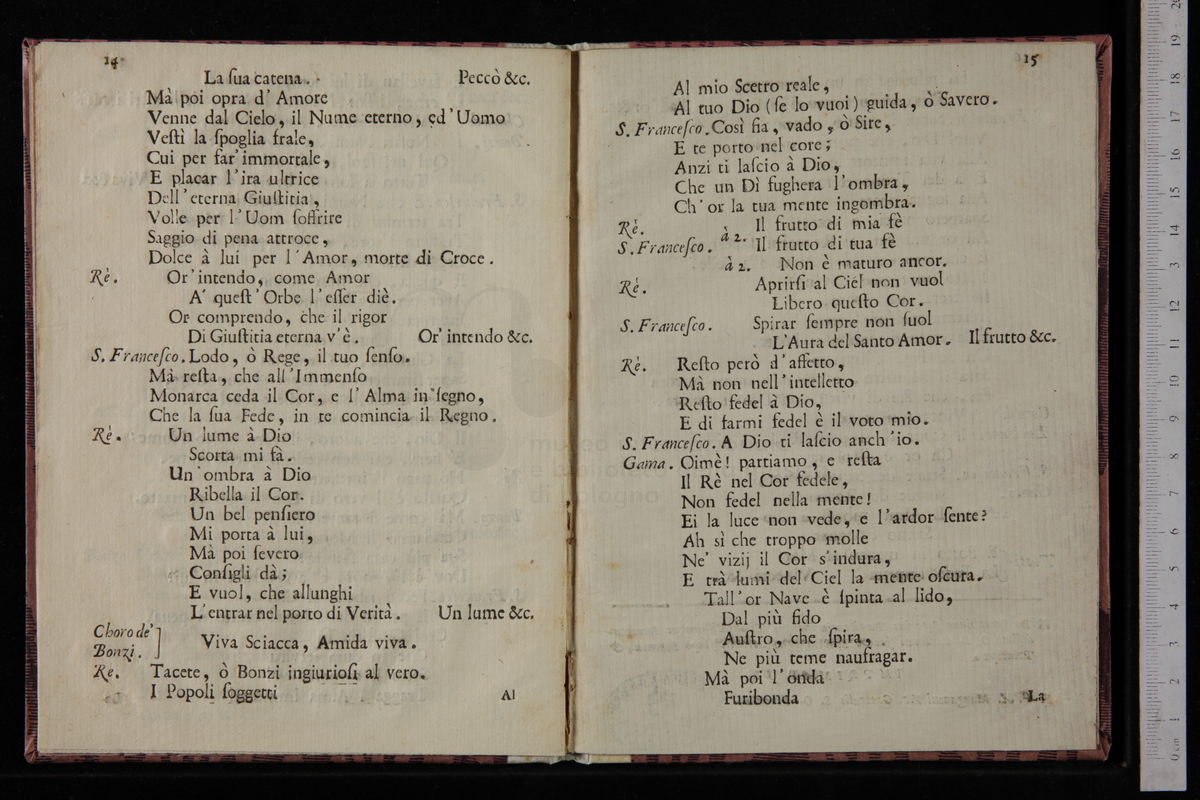 14
La ſua catena. Peccò &c.
Mà poi opra d' Amore
Venne dal Cielo, il Nume eterno, ed'Uomo
Veſtì la ſpoglia frale,
Cui per far'immortale,
E placar l'ira ultrice
Dell'eterna Giuſtitia,
Volle per l'Uom ſoffrire
Saggio di pena attroce,
Dolce à lui per l'Amor, morte di Croce.
Rè. Or'intendo, come Amor
A' queſt'Orbe l'eſſer diè.
Or comprendo, che il rigor
Di Giuſtitia eterna v'è. Or'intendo &c.
S. Franceſco. Lodo, ò Rege, il tuo ſenſo.
Mà reſta, che all'Immenſo
Monarca ceda il Cor, e l'Alma in ſegno,
Che la ſua Fede, in te comincia il Regno.
Rè. Un lume à Dio
Scorta mi fà.
Un'ombra à Dio
Ribella il Cor.
Un bel penſiero
Mi porta à lui,
Mà poi ſevero
Conſigli dà;
E vuol, che allunghi
L'entrar nel porto di Verità. Un lume &c.
Choro de' Bonzi. Viva Sciacca, Amida viva.
Re. Tacete, ò Bonzi ingiurioſi al vero.
I Popoli ſoggetti
Al
15
Al mio Scetro reale,
Al tuo Dio (ſe lo vuoi) guida, ò Savero.
S. Franceſco. Così ſia, vado, ò Sire,
E te porto nel core;
Anzi ti laſcio à Dio,
Che un Dì fugherà l'ombra,
Ch'or la tua mente ingombra.
Rè. Il frutto di mia fè
S. Franceſco. à 2. Il frutto di tua fè
à 2. Non è maturo ancor.
Rè. Aprirſi al Ciel non vuol
Libero queſto Cor.
S. Franceſco. Spirar ſempre non ſuol
L'Aura del Santo Amor. Il frutto &c.
Rè. Reſto però d'affetto,
Mà non nell'intelletto
Reſto fedel à Dio,
E di farmi fedel è il voto mio.
S. Franceſco. A Dio ti laſcio anch'io.
Gama. Oimè! partiamo, e reſta
Il Rè nel Cor fedele,
Non fedel nella mente!
Ei la luce non vede, e l'ardor ſente?
Ah sì che troppo molle
Ne' vizij il Cor s'indura,
E trà lumi del Ciel la mente oſcura.
Tall'or Nave è ſpinta al lido,
Dal più fido
Auſtro, che ſpira,
Ne più teme naufragar.
Mà poi l'onda
Furibonda
La